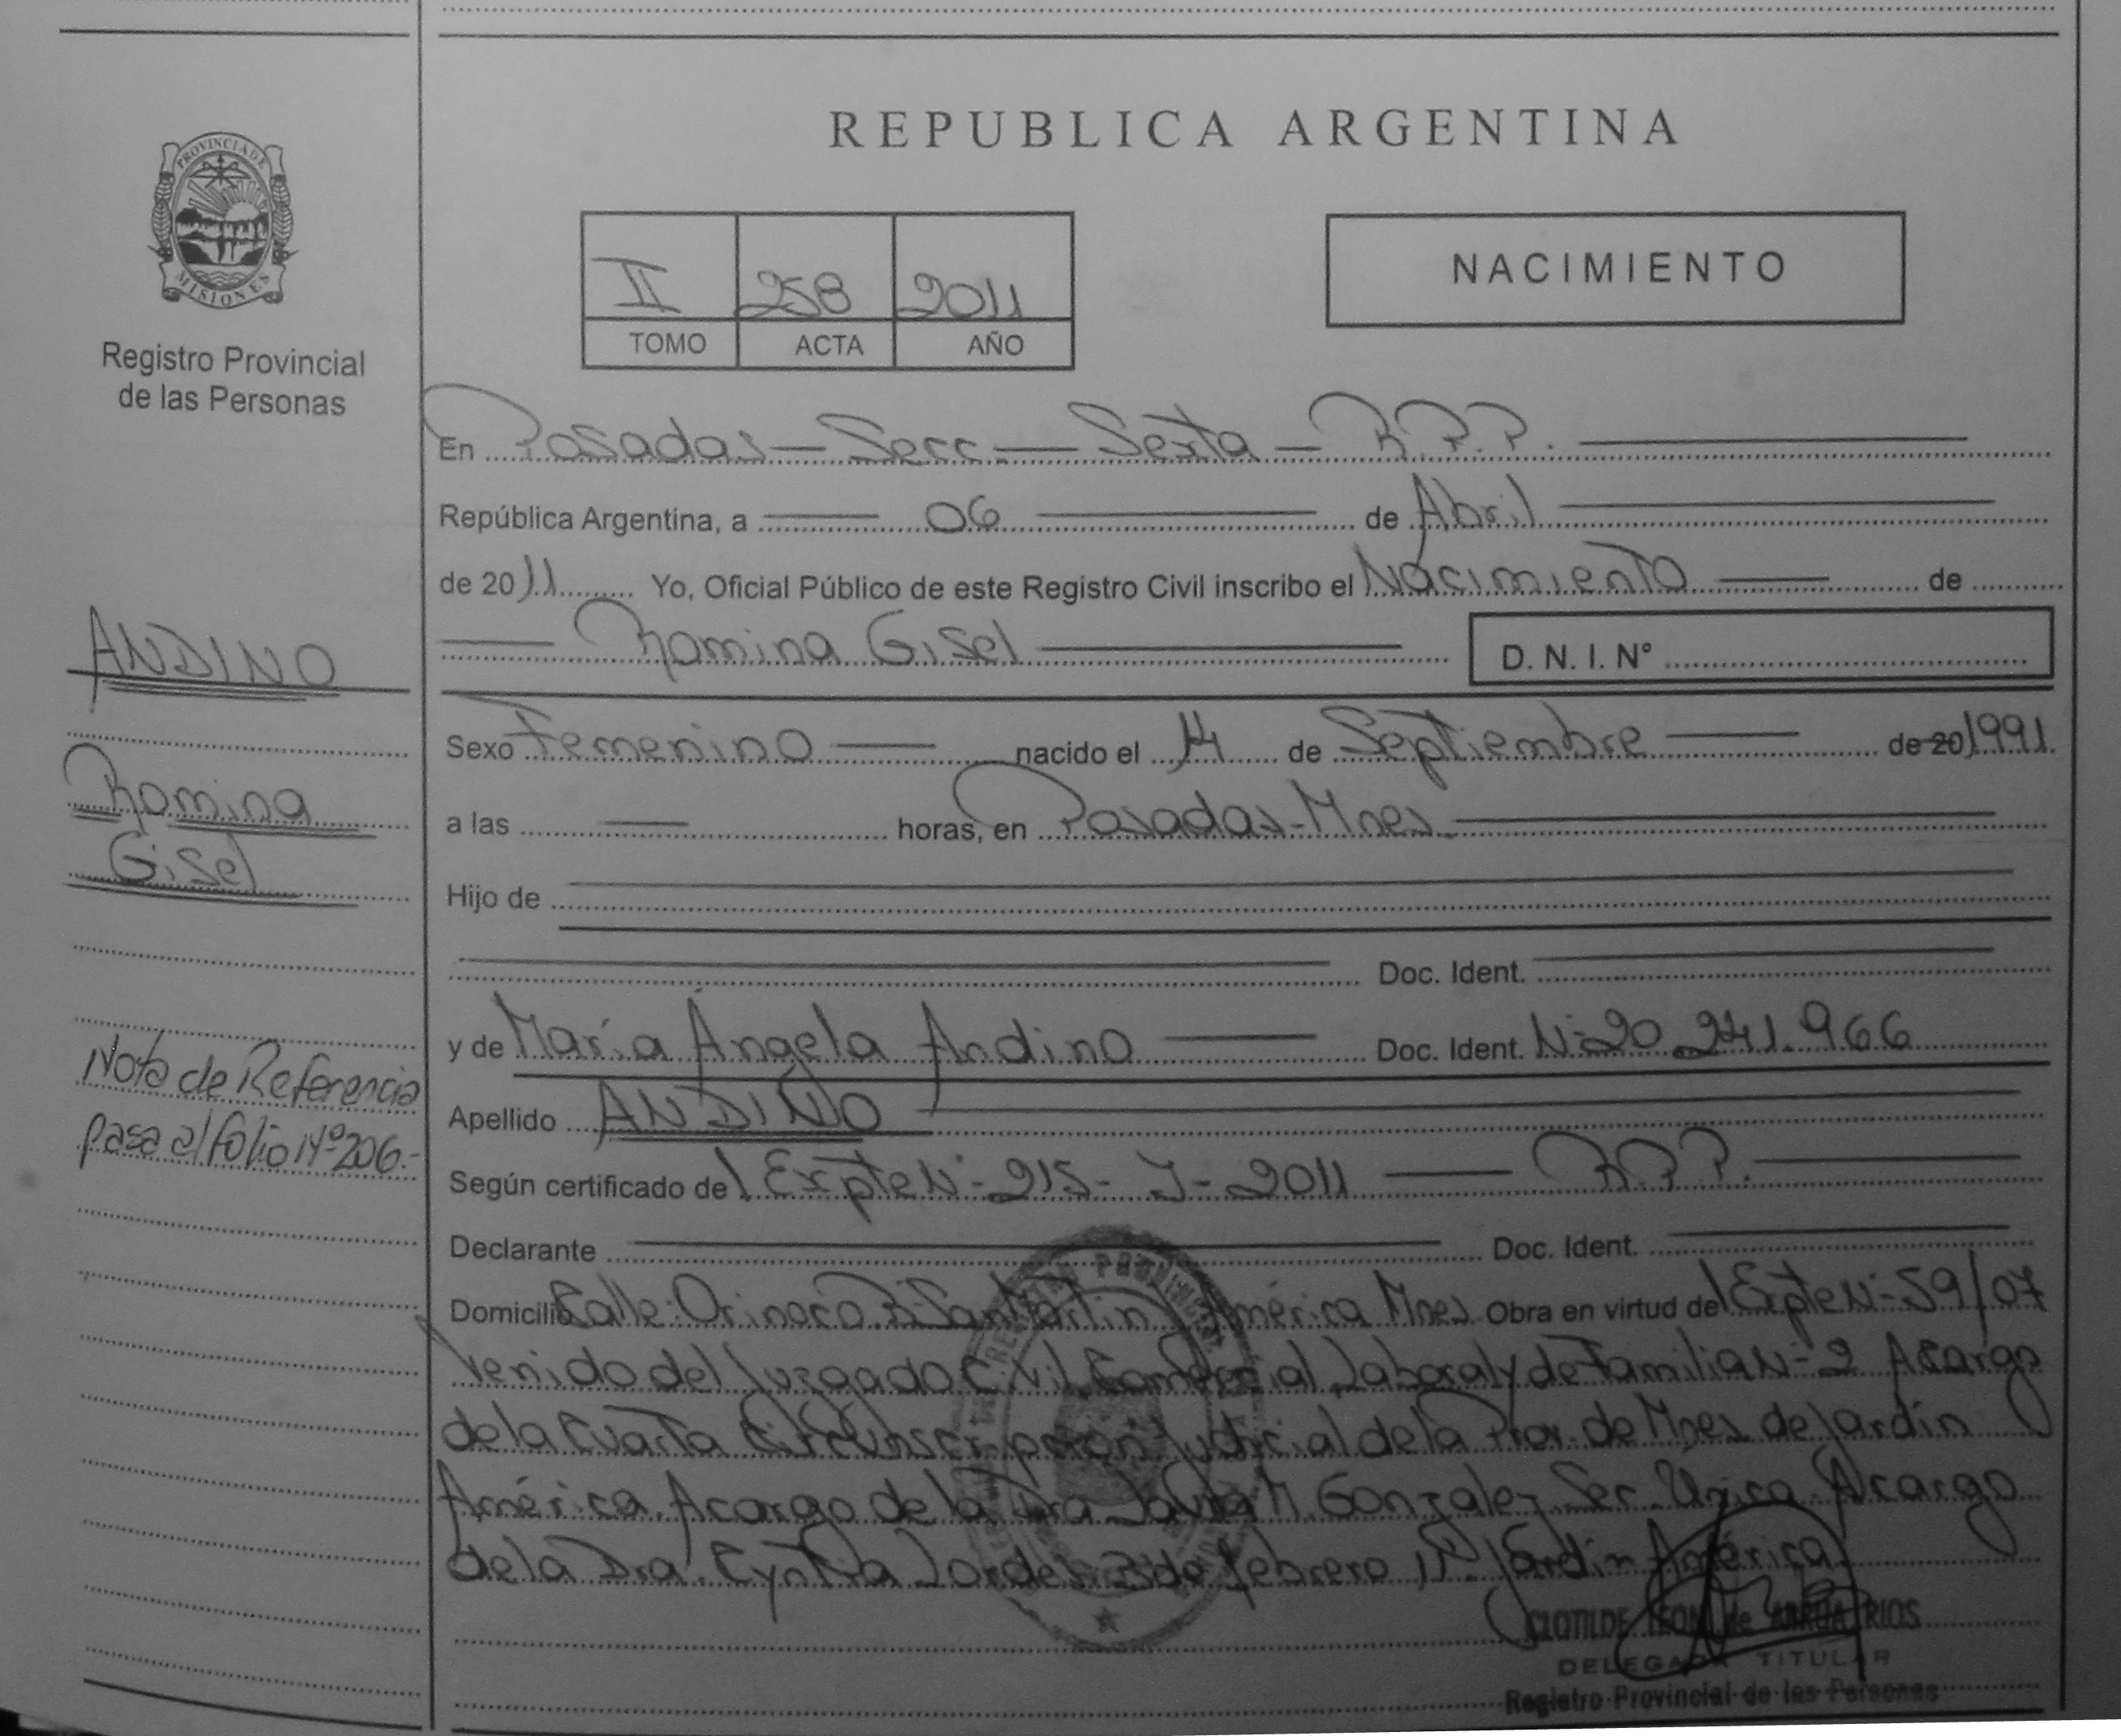 REPUBLICA ARGENTINA
PROVINCIA DE
MISIONES
Registro Provincial
de las Personas
II 258 2011
TOMO ACTA AÑO
NACIMIENTO
En Posadas - Secc. - Sexta - R.P.P.
República Argentina, a 06 de Abril
de 2011 Yo, Oficial Público de este Registro Civil inscribo el Nacimiento de
Romina Gisel
D. N. I. Nº
ANDINO
Romina
Gisel
Sexo Femenino nacido el de Septiembre de 20 1991.
a las horas, en Posadas - Mnes.
Hijo de
Doc. Ident.
y de María Ángela Andino Doc. Ident. N- 20.241.966
Apellido ANDINO
Nota de Referencia
pasa al folio Nº 206.-
Según certificado de Expte N- 215- - 2011 R.P.P.
Declarante Doc. Ident.
Domicilio Calle: Orinoco San Martín América Mnes Obra en virtud de Expte N- 59/07
venido del Juzgado Civil Comercial, Laboral y de Familia N- 2 A cargo
de la Cuarta Circunscripción Judicial de la Prov. de Mnes de Jardín
América. A cargo de la Dra Laura M. Gonzalez Sec. Única A cargo
de la Dra. Cynthia de febrero 11. Jardín América.
CLOTILDE LEONI de ARRUA RIOS
DELEGADA TITULAR
Registro Provincial de las Personas